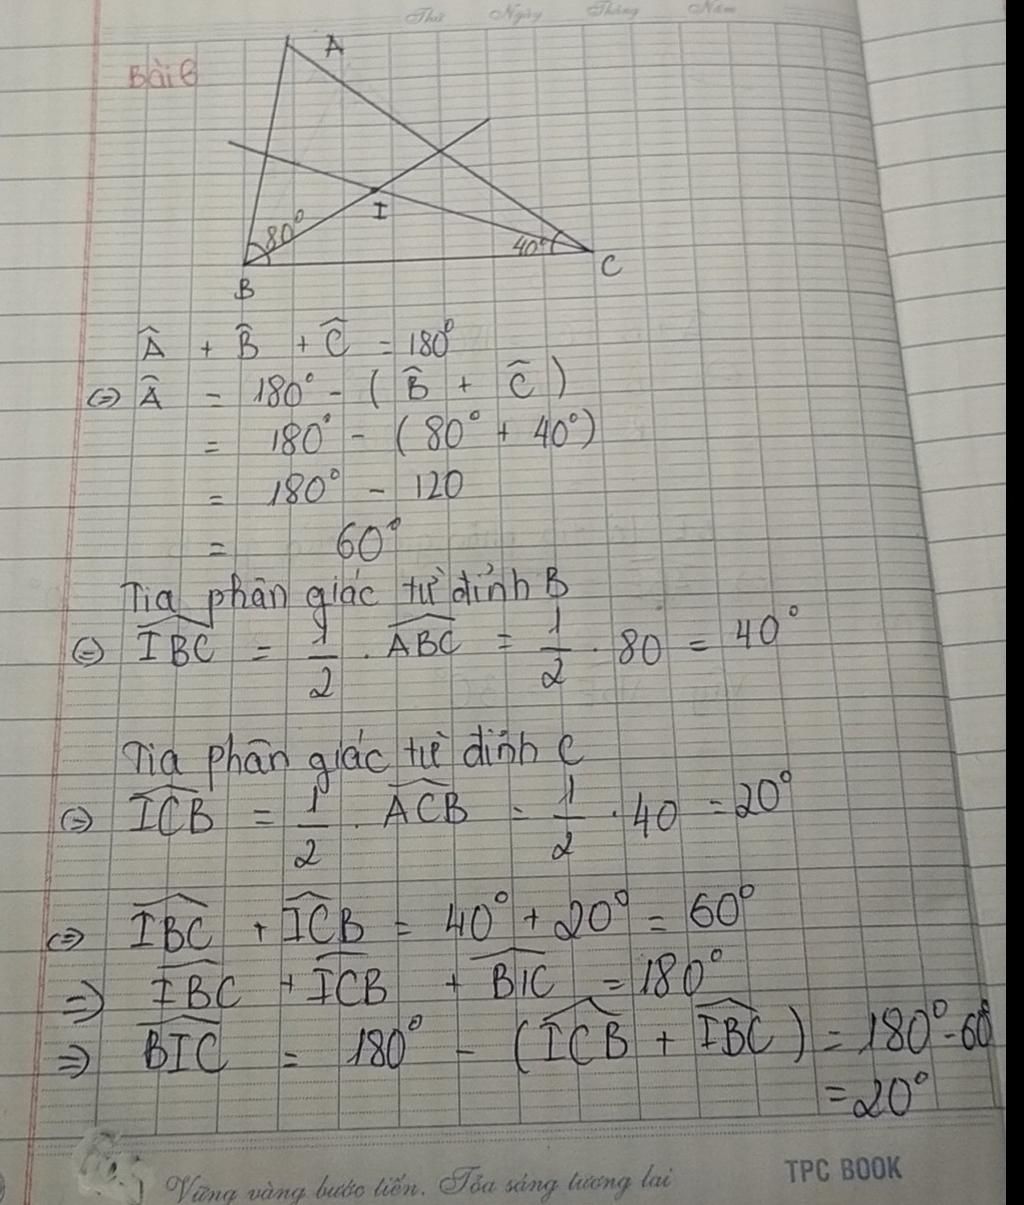 Thứ Ngày Tháng Năm
Bài 6
A
I
80°
40°
B
C
Â + B̂ + Ĉ = 180°
(=) Â = 180° - ( B̂ + Ĉ )
= 180° - ( 80° + 40° )
= 180° - 120
= 60°
Tia phân giác từ đỉnh B
(=) \widehat{IBC} = \frac{1}{2} . \widehat{ABC} = \frac{1}{2} . 80 = 40°
Tia phân giác từ đỉnh C
(=) \widehat{ICB} = \frac{1}{2} . \widehat{ACB} = \frac{1}{2} . 40 = 20°
(=) \widehat{IBC} + \widehat{ICB} = 40° + 20° = 60°
=) \widehat{IBC} + \widehat{ICB} + \widehat{BIC} = 180°
=) \widehat{BIC} = 180° - ( \widehat{ICB} + \widehat{IBC} ) = 180° - 60°
= 20°
Vững vàng bước tiến. Tỏa sáng tương lai
TPC BOOK